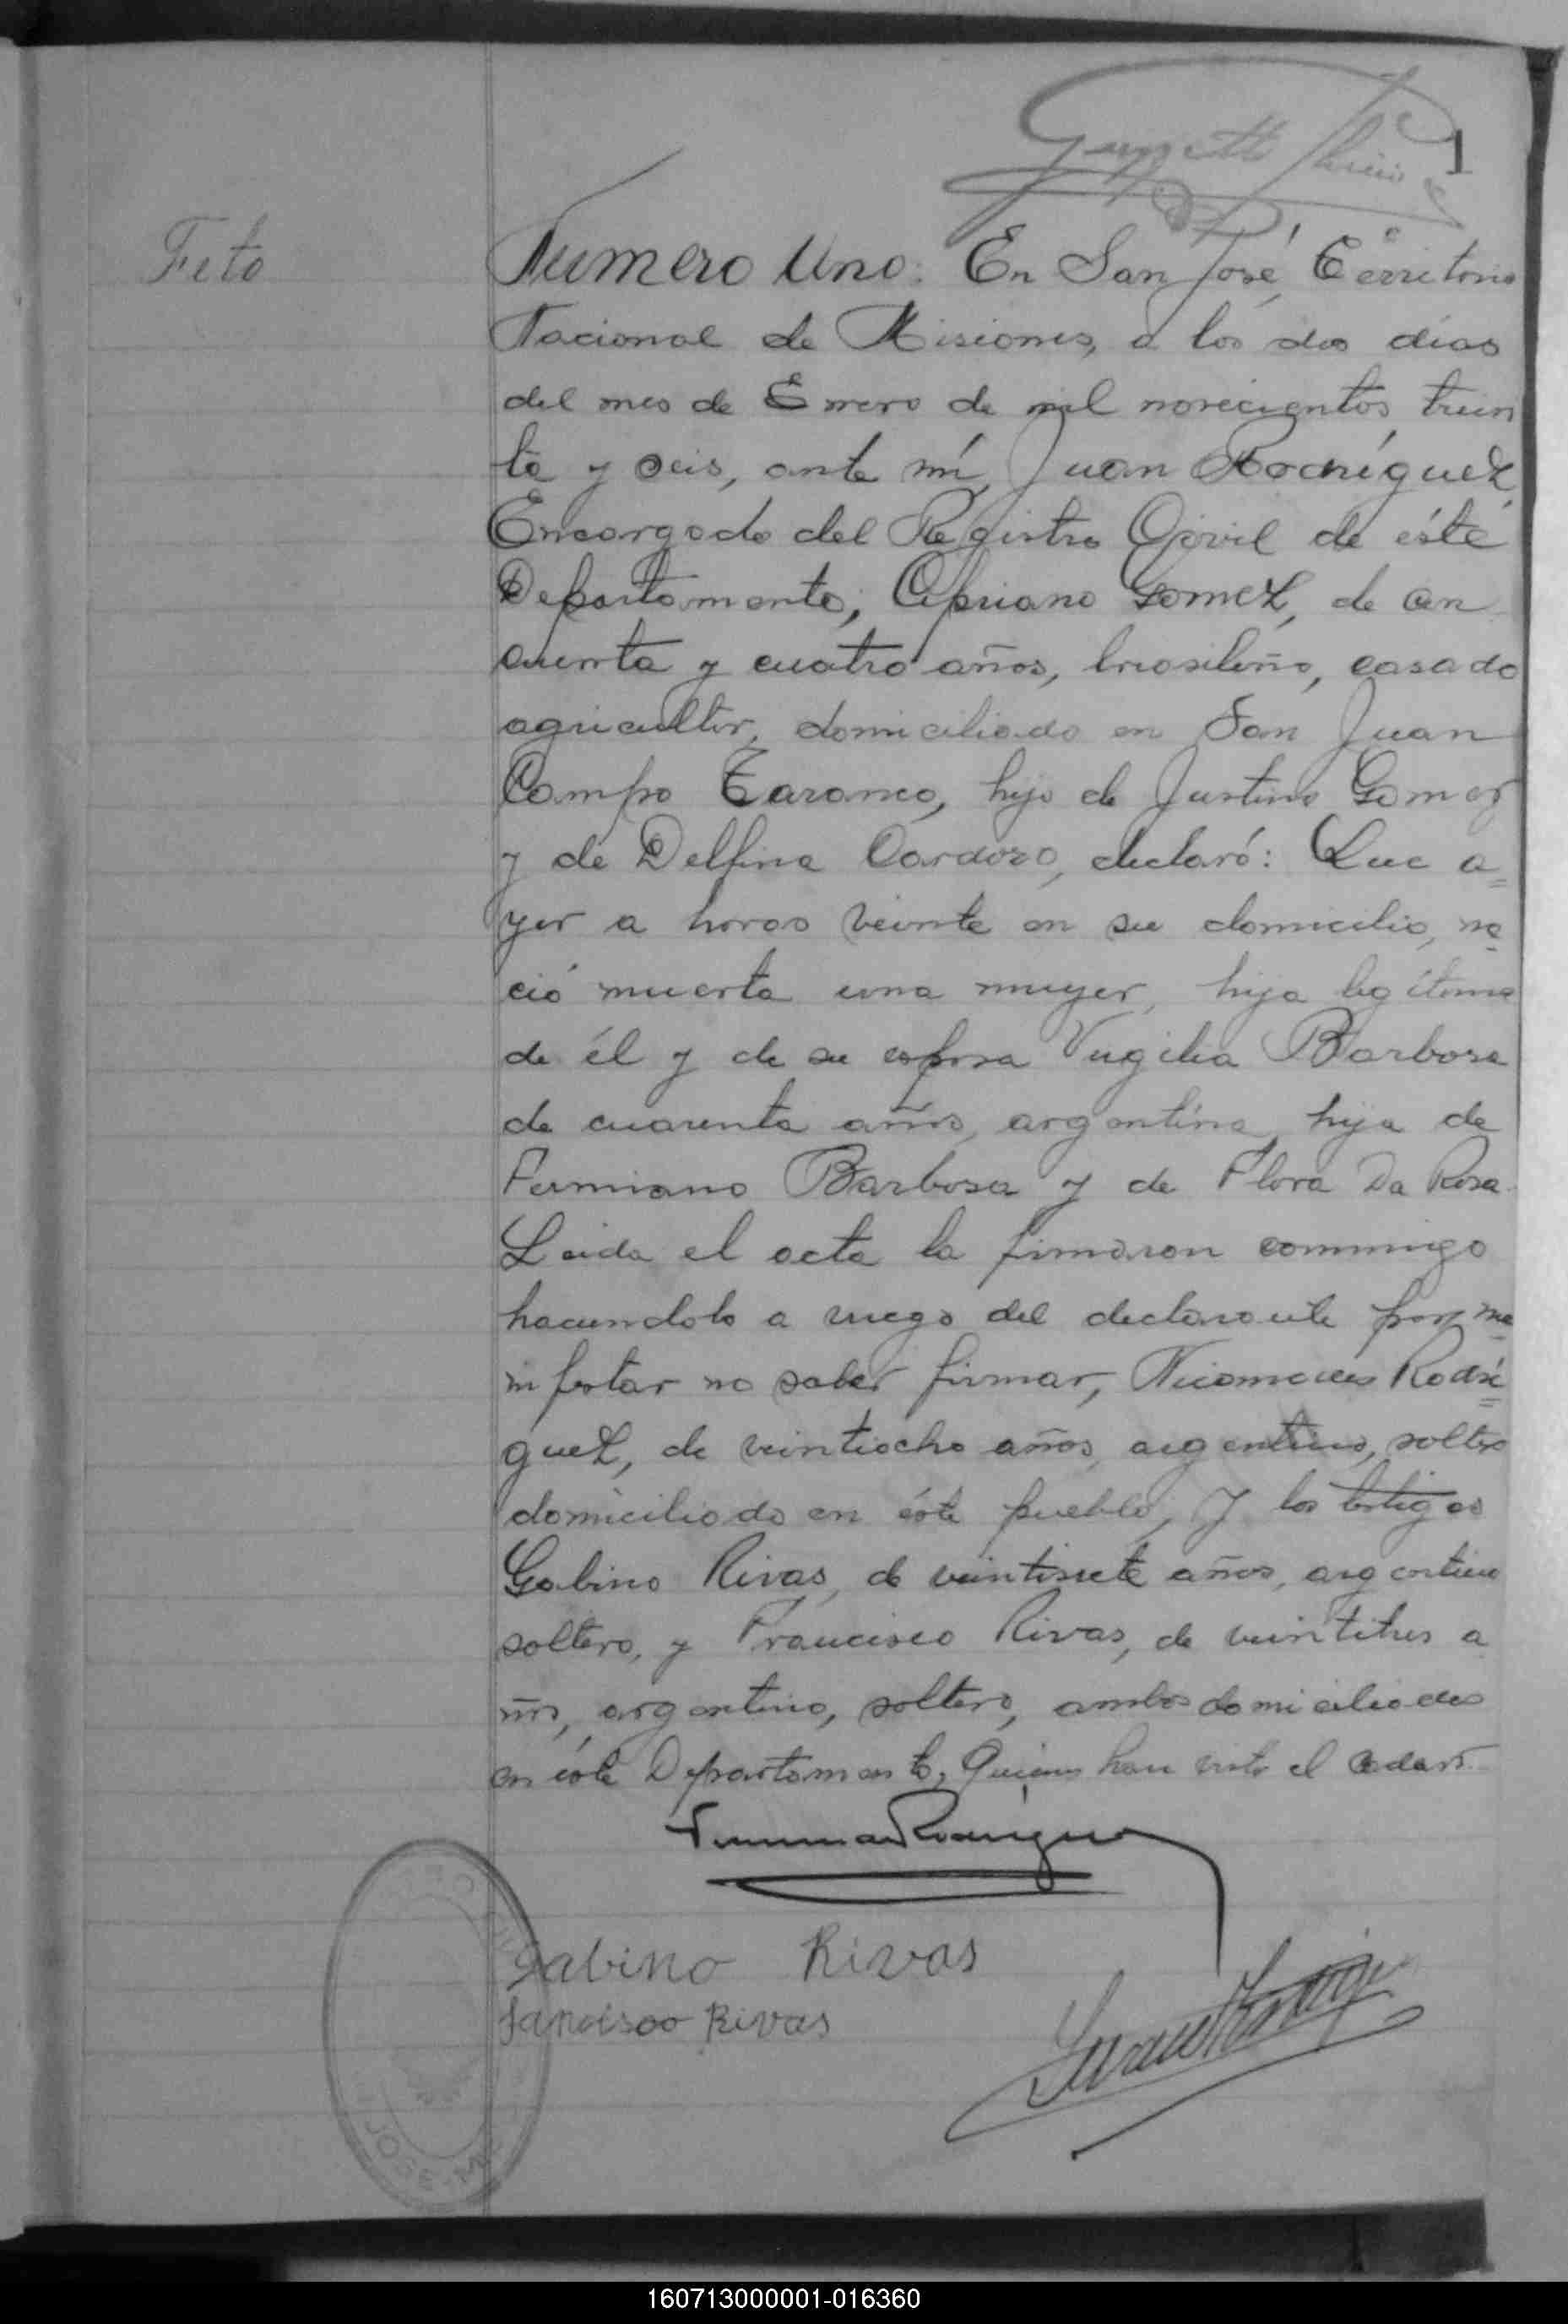 1
Feto
Numero Uno: En San José, Territorio
Nacional de Misiones, a los dos dias
del mes de Enero de mil novecientos trein
ta y seis, ante mí, Juan Rodríguez,
Encargado del Registro Civil de éste
Departamento, Cipriano Gomez, de cin
cuenta y cuatro años, brasileño, casado
agricultor, domiciliado en San Juan
Campo Taranco, hijo de Justino Gomez
y de Delfina Cardozo, declaró: Que a=
yer a horas veinte en su domicilio, na
ció muerta una mujer, hija legítima
de él y de su esposa Virgilia Barbosa
de cuarenta años, argentina, hija de
Fermiano Barbosa y de Flora Da Rosa.
Leida el acta la firmaron conmigo
haciendolo a ruego del declarante por ma
nifestar no saber firmar, Nicomedes Rodrí=
guez, de veintiocho años, argentino, soltero
domiciliado en éste pueblo, y los testigos
Gabino Rivas, de veintisiete años, argentino
soltero, y Francisco Rivas, de veintitres a
ños, argentino, soltero, ambos domiciliados
en éste Departamento, Quienes han visto el cadaver.
Gabino Rivas
Francisco Rivas
Juan Rodríguez
JOSE
160713000001-016360